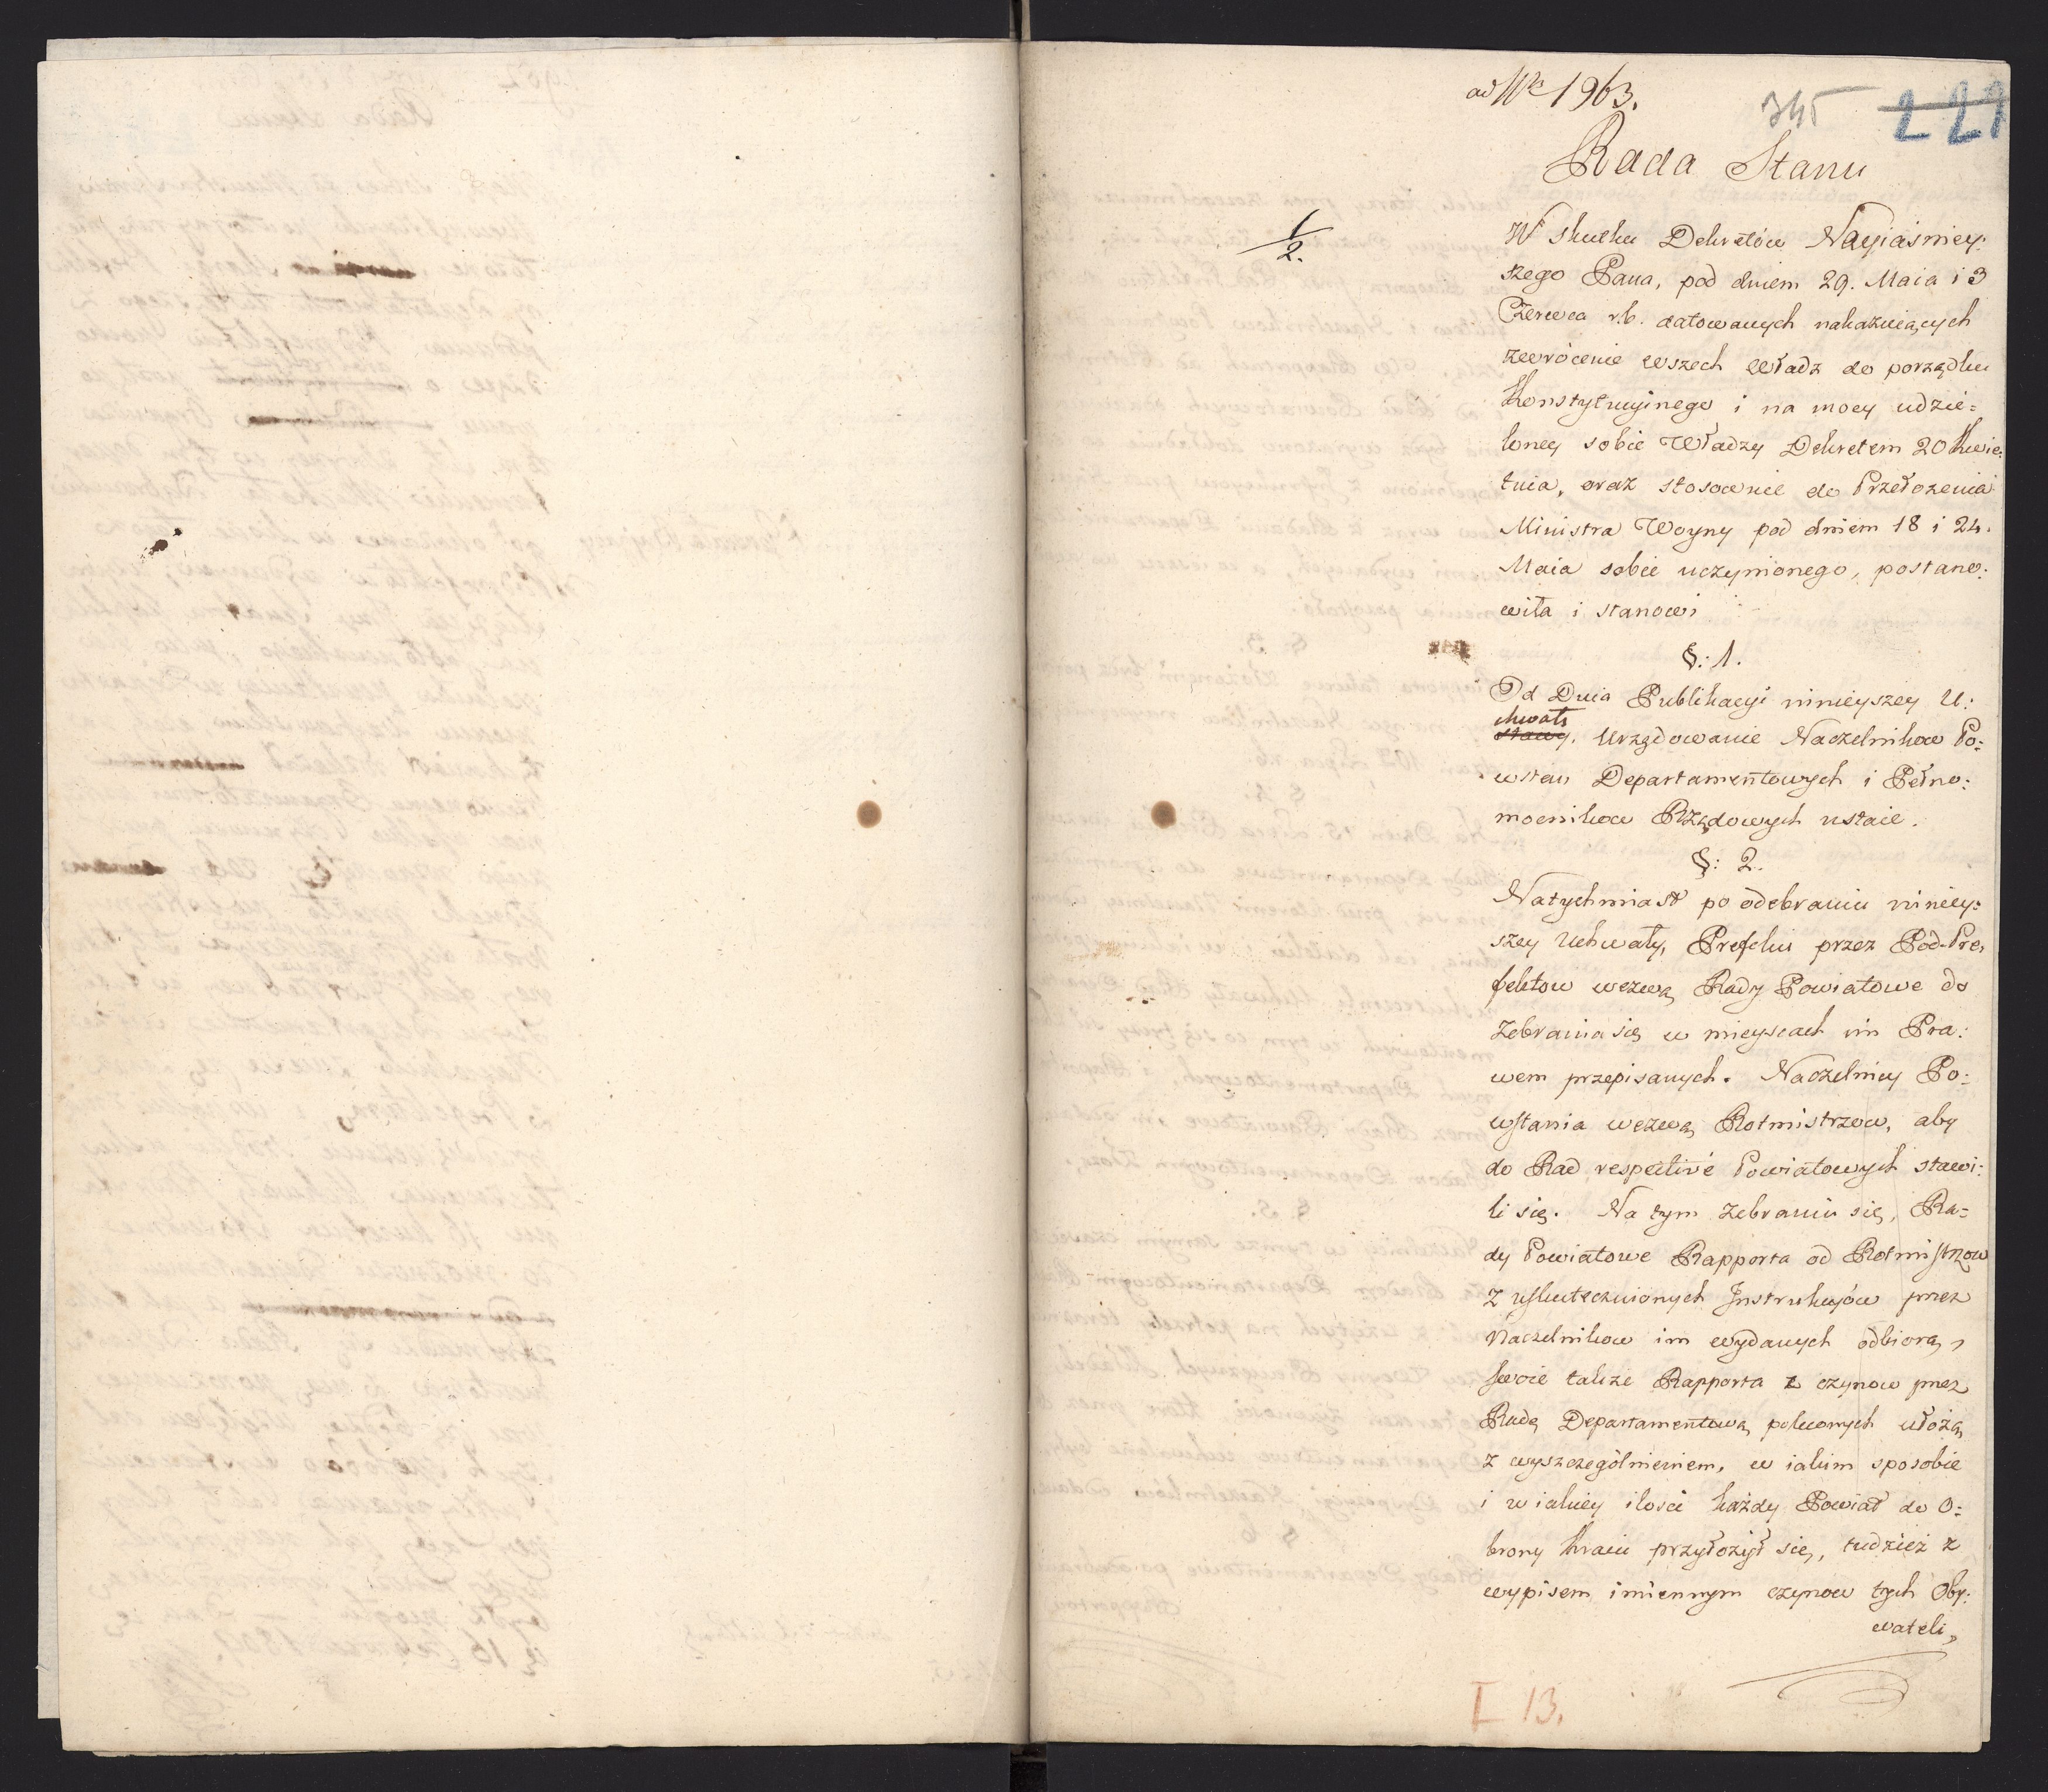 ad Nr 1963.
345 229
Rada Stanu
1/2.
W skutku Dekretów Nayiaśniey:
szego Pana, pod dniem 29. Maia i 3
Czerwca r.b. datowanych nakazuiących
zwrócenie wszech Władz do porządku
Konstytucyinego i na mocy udzie=
loney sobie Władzy Dekretem 20 Kwie:
tnia, oraz stosownie do Przełożenia
Ministra Woyny pod dniem 18 i 24.
Maia sobie uczynionego, postano:
wiła i stanowi
§: 1.
Od Dnia Publikacyi ninieyszey U:
chwały
stawy. Urzędowanie Naczelnikow Po:
wstań Departamentowych i Pełno:
mocnikow Rządowych ustaie.
§: 2.
Natychmiast po odebraniu niniey:
szey Uchwały, Prefekci przez Pod-Pre,
fektow wezwą Rady Powiatowe do
Zebrania się w mieyscach im Pra:
wem przepisanych. Naczelnicy Po:
wstania wezwą Rotmistrzow, aby
do Rad respective Powiatowych stawi:
li się. Na tym zebraniu się, Ra=
dy Powiatowe Rapporta od Rotmistrzow
z uskutecznionych Instrukcyów przez
Naczelnikow im wydanych odbiorą,
swoie także Rapporta z czynow przez
Radę Departamentową poleconych ułożą,
z wyszczególnieniem, w iakim sposobie
i w iakiey ilości każdy Powiat do O:
brony Kraiu przyłożył się, tudzież z
wypisem imiennym czynow tych Oby:
wateli,
I 13.